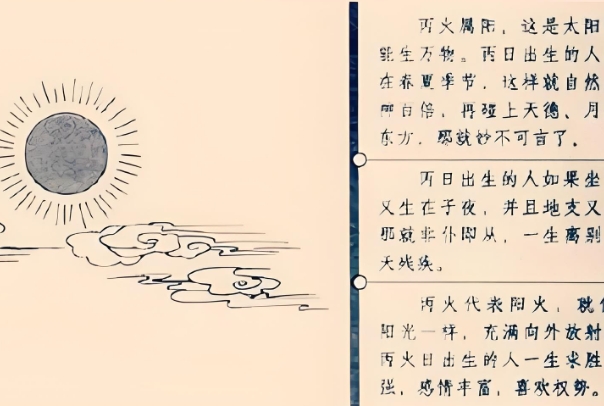 丙火属阳，这是太阳
能生万物。丙日出生的人
在春夏季节，这样就自然
百倍，再碰上天德、月
东方，那就妙不可言了。
丙日出生的人如果坐
又生在子夜，并且地支又
那就非仆即从，一生离别
天残疾。
丙火代表阳火，就
阳光一样，充满向外放射
丙火日出生的人一生求胜
强，感情丰富，喜欢权势。